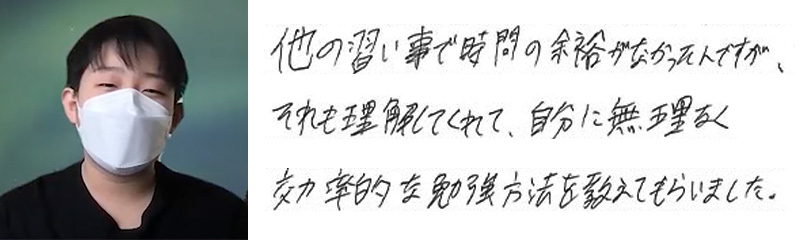 他の習い事で時間の余裕がなかったんですが、
それも理解してくれて、自分に無理なく
効率的な勉強方法を教えてもらいました。